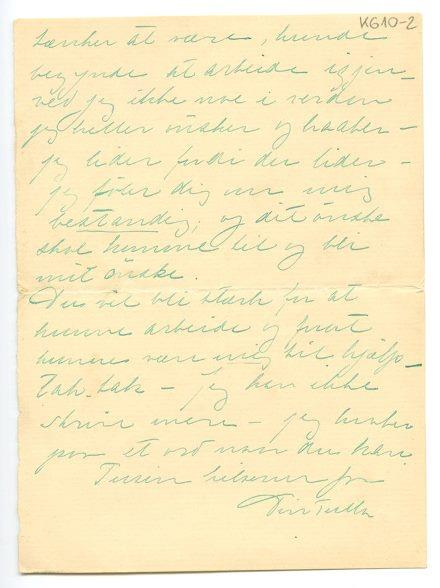 KG10-2
tænker at være, kunde
begynde at arbeide igjen –
ved jeg ikke noe i verden
jeg heller ønsker og haaber –
jeg lider fordi du lider –
jeg føler dig om mig
bestandig, og dit ønske
skal komme til og bli
mit ønske.
Du vil bli stærk for at
kunne arbeide og
kunne være mig til hjælp –
tak – tak – Jeg kan ikke
skrive mere – jeg haaber
paa et ord naar du kan.
Tusen hilsener fra
Din Tulla